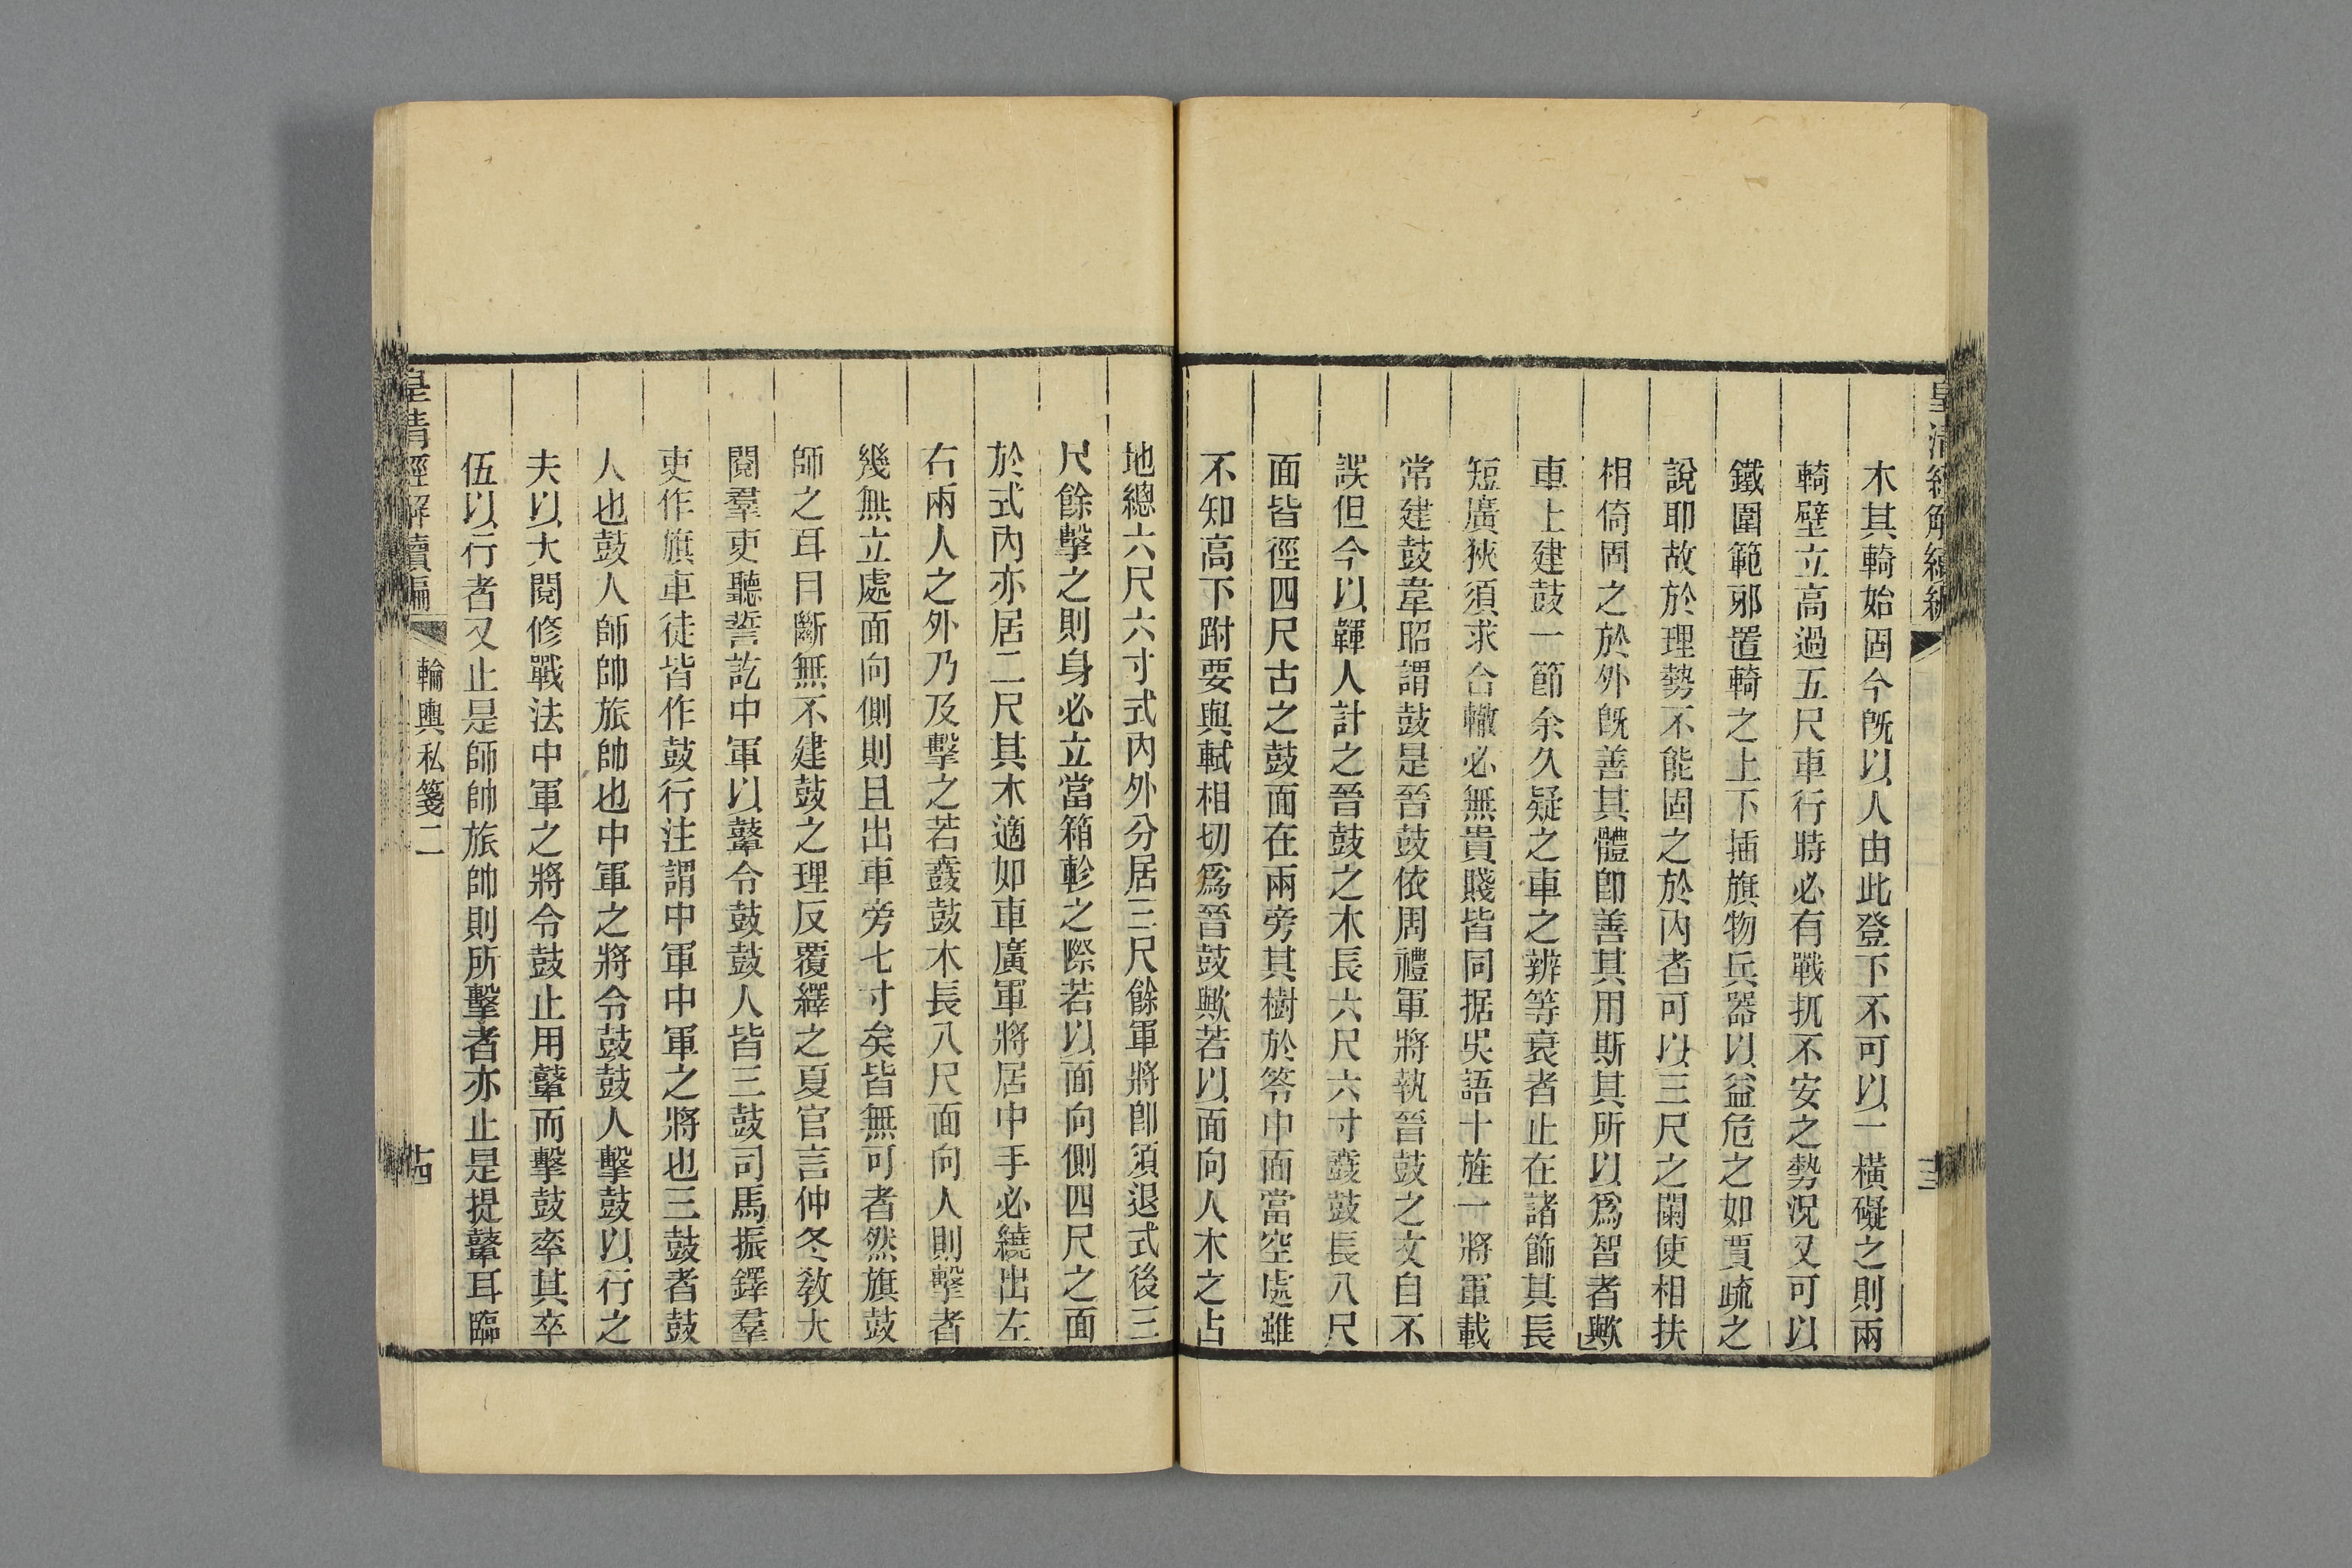 皇清經解續編
十三
木其輢始固今旣以人由此登下不可以一橫礙之則兩
輢壁立高過五尺車行時必有戰扤不安之勢況又可以
鐵圍範邪置輢之上下插旗物兵器以益危之如賈疏之
說耶故於理勢不能固之於內者可以三尺之闌使相扶
相倚固之於外旣善其體卽善其用斯其所以爲智者歟
車上建鼓一節余久疑之車之辨等衰者止在諸飾其長
短廣狹須求合轍必無貴賤皆同据吳語十旌一將軍載
常建鼓韋昭謂鼓是晉鼓依周禮軍將執晉鼓之文自不
誤但今以韗人計之晉鼓之木長六尺六寸鼖鼓長八尺
面皆徑四尺古之鼓面在兩旁其樹於笭中面當空處雖
不知高下跗要與軾相切爲晉鼓歟若以面向人木之占
地總六尺六寸式內外分居三尺餘軍將卽須退式後三
尺餘擊之則身必立當箱軫之際若以面向側四尺之面
於式內亦居二尺其木適如車廣軍將居中手必繞出左
右兩人之外乃及擊之若鼖鼓木長八尺面向人則擊者
幾無立處面向側則且出車旁七寸矣皆無可者然旗鼓
師之耳目斷無不建鼓之理反覆繹之夏官言仲冬敎大
閱羣吏聽誓訖中軍以鼙令鼓鼓人皆三鼓司馬振鐸羣
吏作旗車徒皆作鼓行注謂中軍中軍之將也三鼓者鼓
人也鼓人師帥旅帥也中軍之將令鼓鼓人擊鼓以行之
夫以大閱修戰法中軍之將令鼓止用鼙而擊鼓率其卒
伍以行者又止是師帥旅帥則所擊者亦止是提鼙耳臨
皇清經解續編
輪輿私箋二
十四